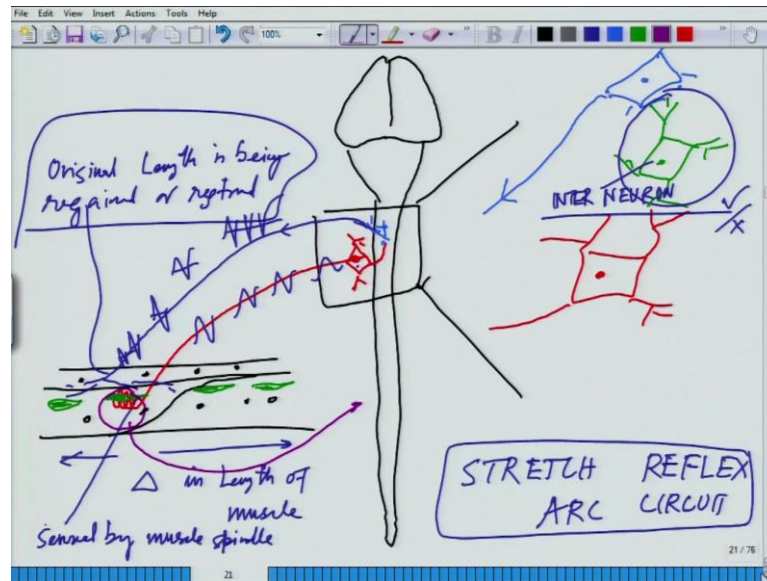 File Edit View Insert Actions Tools Help
100%
B I
Original Length is being
regained or restored
INTER NEURON
√/X
Δ in Length of
muscle
Sensed by muscle spindle
STRETCH REFLEX
ARC CIRCUIT
21 / 76
21